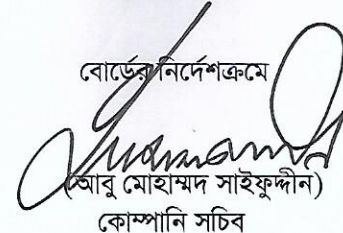 বোর্ডের নির্দেশক্রমে
(আবু মোহাম্মদ সাইফুদ্দীন)
কোম্পানি সচিব